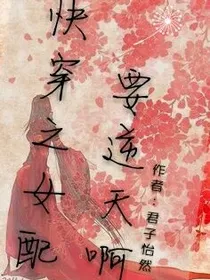 快穿之女配
要逆天啊
作者：君子怡然